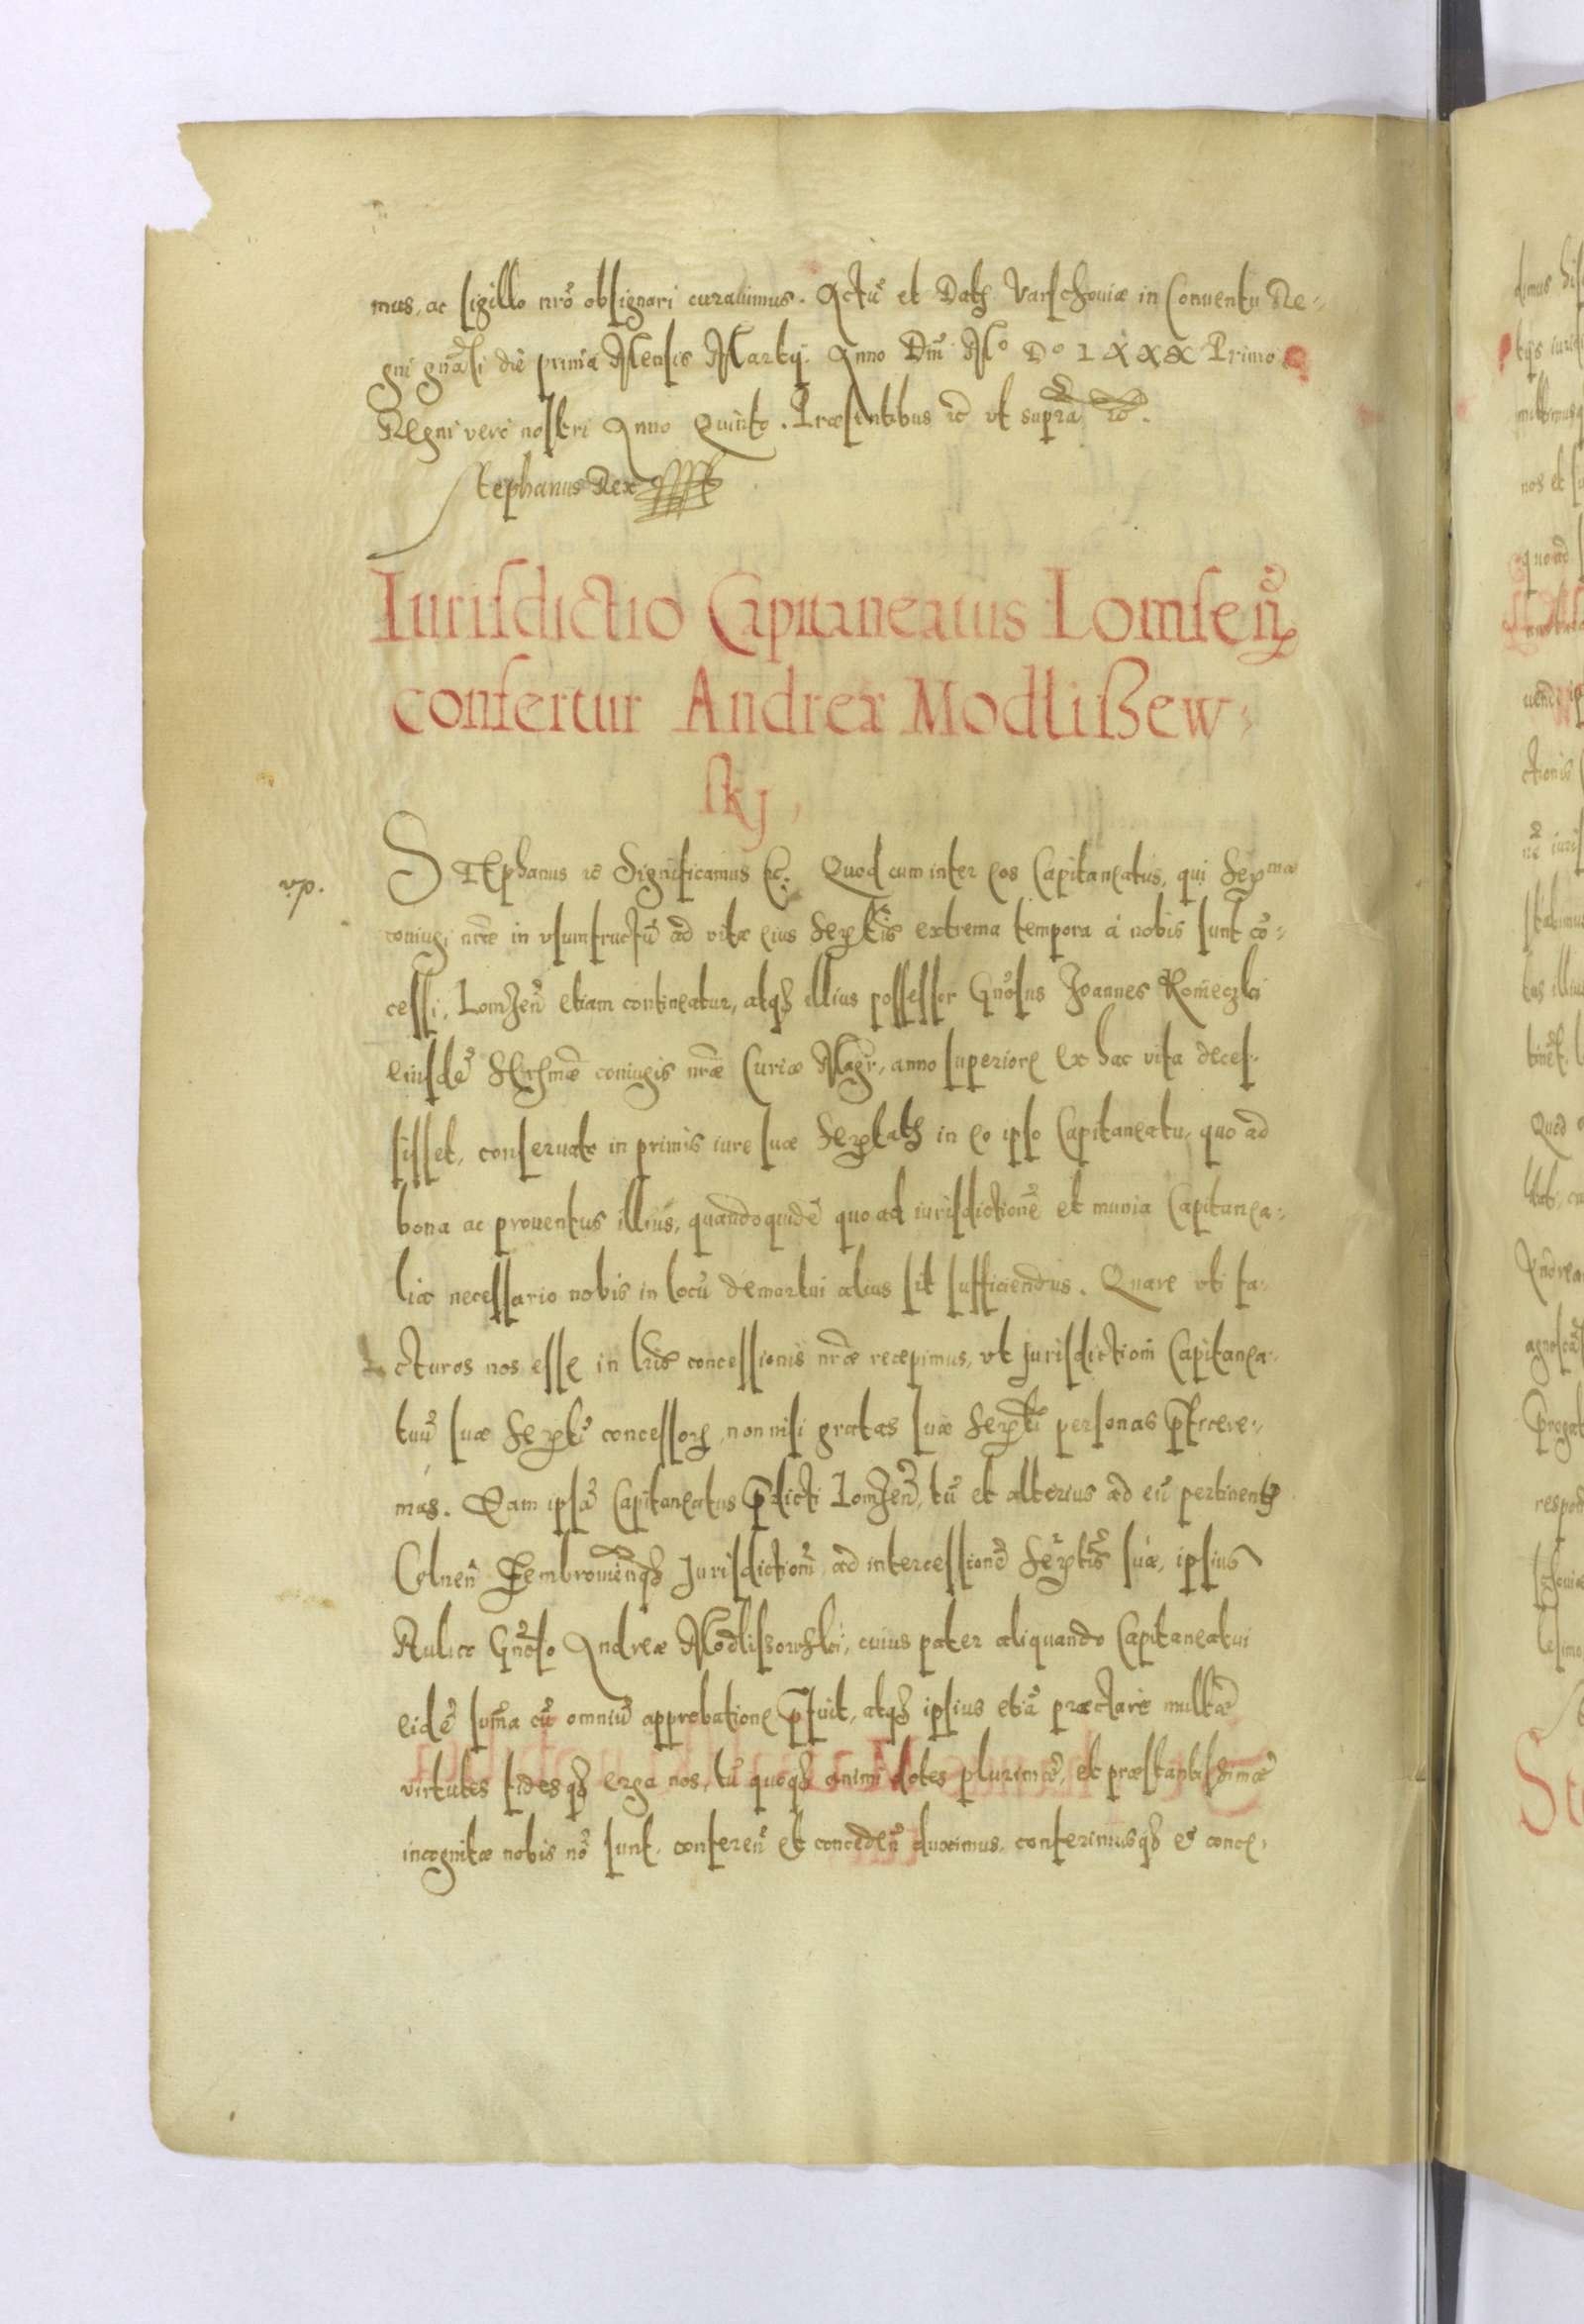 mus, ac sigillo nrō obsignari curauimus. Actū et Datꝫ Varschouiæ in Conuentu Re-
gni gnāli die prima Mensis Martij. Anno Dnī Mº Dº LXXX Primo
Regni vero nostri Anno Quinto. Præsentibus ꝛc̄ vt supra ꝛc̄.
Stephanus Rex
Iurisdictio Capitaneatus Lomsen̄
confertur Andreæ Modlißew-
skj,
vp.
STEphanus ꝛc Significamus ꝛc. Quod cum inter eos Capitaneatus, qui Serma
coniugi nrē in vsumfructū ad vitæ eius Sertis extrema tempora à nobis sunt cō-
cessi, Lomzen̄ etiam contineatur, atqꝫ illius possessor Gnōsus Joannes
eiusdē Sermæ coniugis nræ Curiæ Magr, anno superiore ex hac vita deces-
sisset, conseruato in primis iure suæ Sertatꝫ in eo ipso Capitaneatu, quo ad
bona ac prouentus illius, quandoquidē quo ad iurisdictionē et munia Capitanea-
lia necessario nobis in locū demortui alius sit sufficiendus. Quare vti fa-
cturos nos esse in lrīs concessionis nræ recepimus, vt jurisdictioni Capitanea-
tuū suæ Serti concessorꝫ, non nisi gratas suæ Serti personas p̄ficere-
mus. Eam ipsā Capitaneatus p̄dicti Lomzen̄, tū et alterius ad eū pertinentꝫ
Colnen̄ Zembrouien̄qꝫ Jurisdictionē, ad intercessionē Sertis suæ, ipsius
Aulico Gnōso Andreæ Modliszowski, cuius pater aliquando Capitaneatui
eidē sum̄a cū omniū approbatione p̄fuit, atqꝫ ipsius etiā præclaræ multæ
virtutes fidesqꝫ erga nos, tū quoqꝫ animi dotes plurimæ, et præstantissimæ
incognitæ nobis nō sunt, conferen̄ et conceden̄ duximus, conferimusqꝫ et conce-